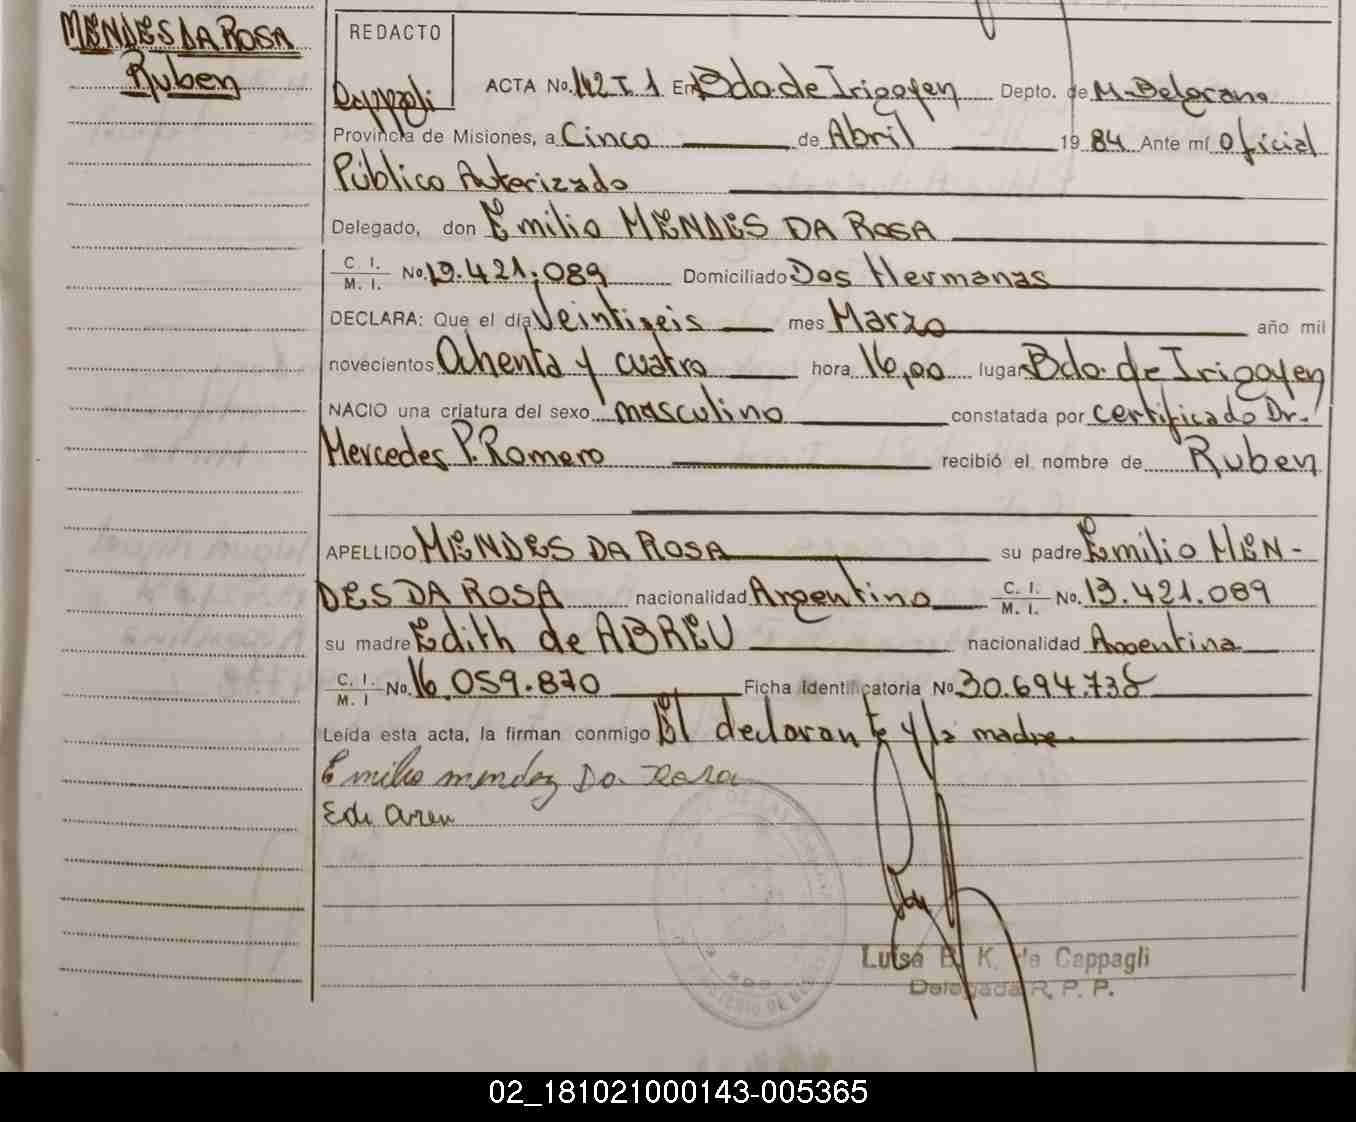 MENDES DA ROSA
Ruben
REDACTO
Cappagli
ACTA No. 142 T. 1 En Bdo. de Irigoyen Depto. de M. Belgrano
Provincia de Misiones, a Cinco de Abril 19 84 Ante mí Oficial
Público Autorizado
Delegado, don Emilio MENDES DA ROSA
C. I.
M. I. No. 13.421.089 Domiciliado Dos Hermanas
DECLARA: Que el día Veintiseis mes Marzo año mil
novecientos Ochenta y cuatro hora 16,00 lugar Bdo. de Irigoyen
NACIO una criatura del sexo masculino constatada por certificado Dr.
Mercedes P. Romero recibió el nombre de Ruben
APELLIDO MENDES DA ROSA su padre Emilio MEN-
DES DA ROSA nacionalidad Argentino C. I.
M. I. No. 13.421.089
su madre Edith de ABREU nacionalidad Argentina
C. I.
M. I No. 16.059.870 Ficha Identificatoria No 30.694.738
Leída esta acta, la firman conmigo El declarante y la madre.
Emilio mendez Da Rosa
Luisa E. K. de Cappagli
Delegada R. P. P.
02_181021000143-005365